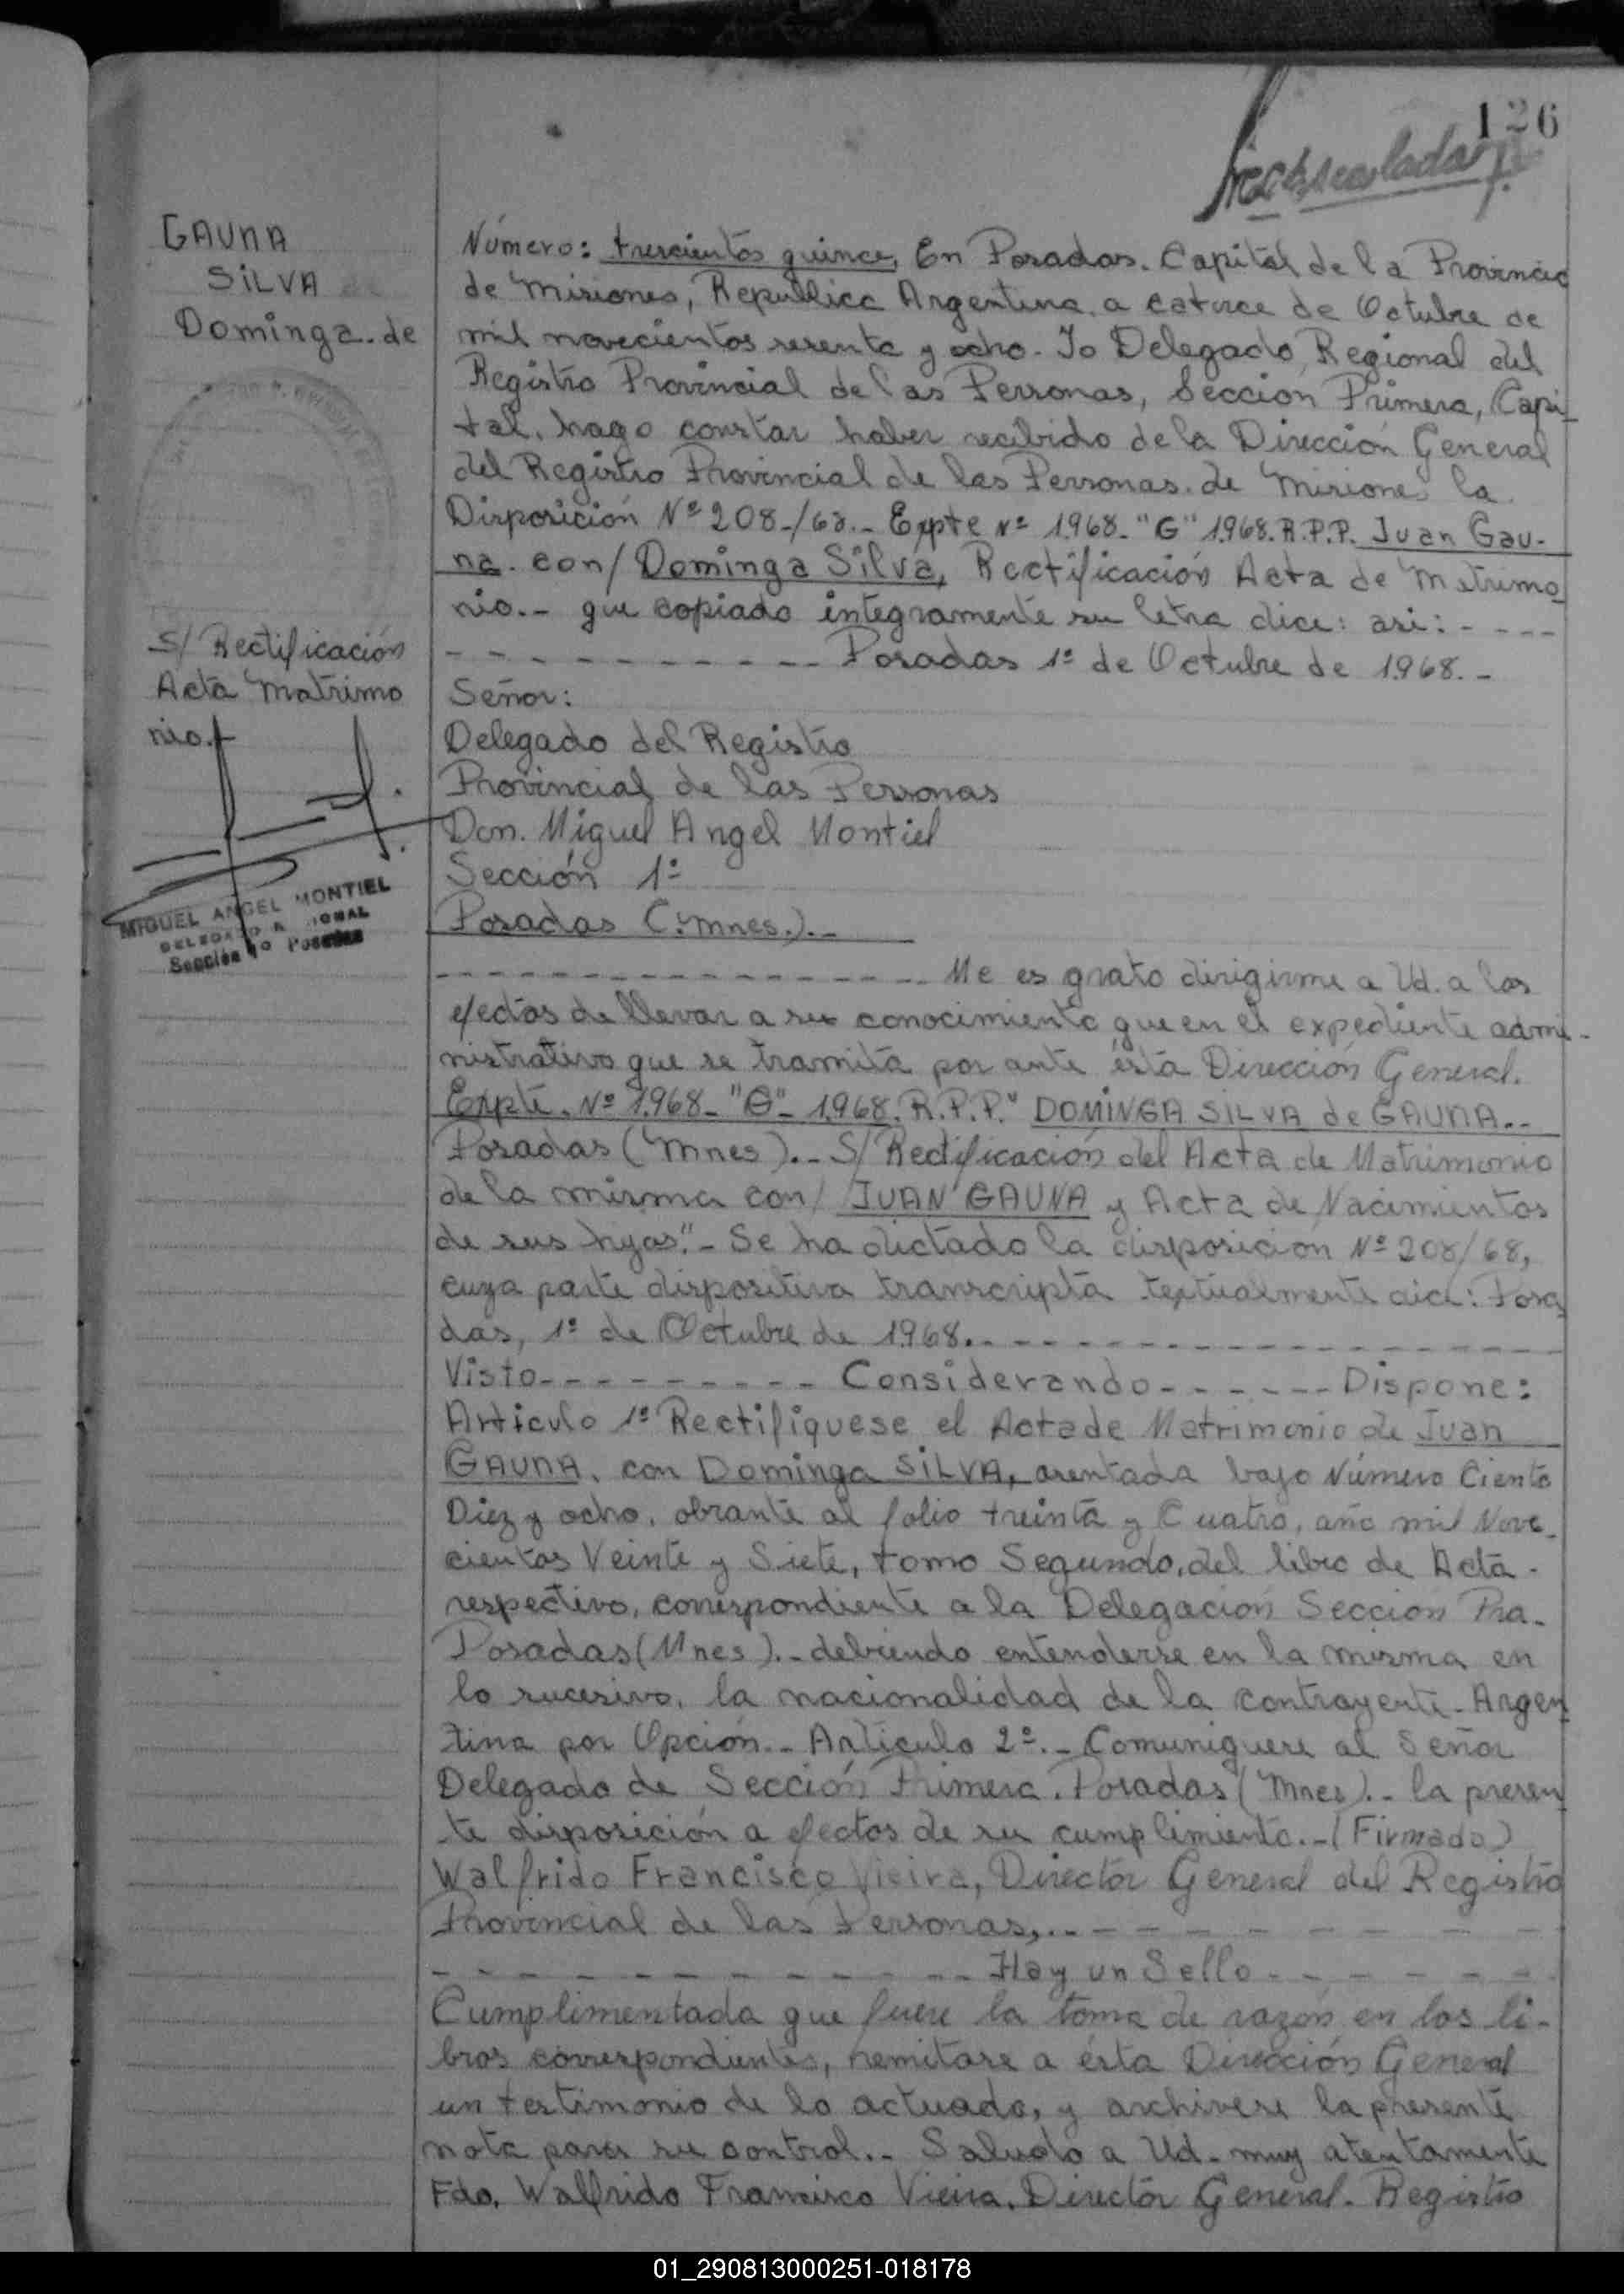 126
GAUNA
SILVA
Dominga. de
S/ Rectificación
Acta Matrimo
nio.
MIGUEL ANGEL MONTIEL
Sección 1o Posadas
Número: trescientos quince, En Posadas. Capital de la Provincia
de Misiones, Republica Argentina, a catorce de Octubre de
mil novecientos sesenta y ocho. Yo Delegado Regional del
Registro Provincial de las Personas, Sección Primera, Capi-
tal, hago constar haber recibido de la Dirección General
del Registro Provincial de las Personas de Misiones la
Disposición Nº 208-/68.- Expte Nº 1968- "G" 1968. R.P.P. Juan Gau-
na. con/ Dominga Silva, Rectificación Acta de Matrimo
nio.- que copiado integramente su letra dice: asi: - - - -
- - - - - - - - - - Posadas 1º de Octubre de 1968.-
Señor:
Delegado del Registro
Provincial de las Personas
Don. Miguel Angel Montiel
Sección 1º
Posadas (Mnes.).-
- - - - - - - - - - - - - Me es grato dirigirme a Ud. a los
efectos de llevar a su conocimiento que en el expediente admi-
nistrativo que se tramita por ante ésta Dirección General.
Expte. Nº 1968- "G"- 1968. R.P.P." DOMINGA SILVA de GAUNA..
Posadas (Mnes).- S/ Rectificación del Acta de Matrimonio
de la misma con/ JUAN GAUNA y Acta de Nacimientos
de sus hijos".- Se ha dictado la disposicion Nº 208/68,
cuya parte dispositiva transcripta textualmente dice: Posa
das, 1º de Octubre de 1968.- - - - - - - - - - - - -
Visto- - - - - - - - - Considerando- - - - - - Dispone:
Articulo 1º Rectifiquese el Acta de Matrimonio de Juan
GAUNA. con Dominga SILVA, asentada bajo Número Ciento
Diez y ocho, obrante al folio treinta y Cuatro, año mil Nove-
cientos Veinte y Siete, tomo Segundo, del libro de Acta.
respectivo, correspondiente a la Delegación Sección Pra.
Posadas (Mnes).- debiendo entenderse en la misma en
lo sucesivo, la nacionalidad de la contrayente- Argen
tina por Opción.- Articulo 2º.- Comuniquese al Señor
Delegado de Sección Primera. Posadas (Mnes).- la presen
te disposición a efectos de su cumplimiento.- (Firmado)
Walfrido Francisco Vieira, Director General del Registro
Provincial de las Personas,.- - - - - - - - - -
- - - - - - - - - - - - Hay un Sello - - - - - -
Cumplimentada que fuere la toma de razón en los li-
bros correspondientes, remitase a ésta Dirección General
un testimonio de lo actuado, y archivese la presente
nota para su control.- Saludo a Ud. muy atentamente
Fdo. Walfrido Francisco Vieira. Director General. Registro
01_290813000251-018178